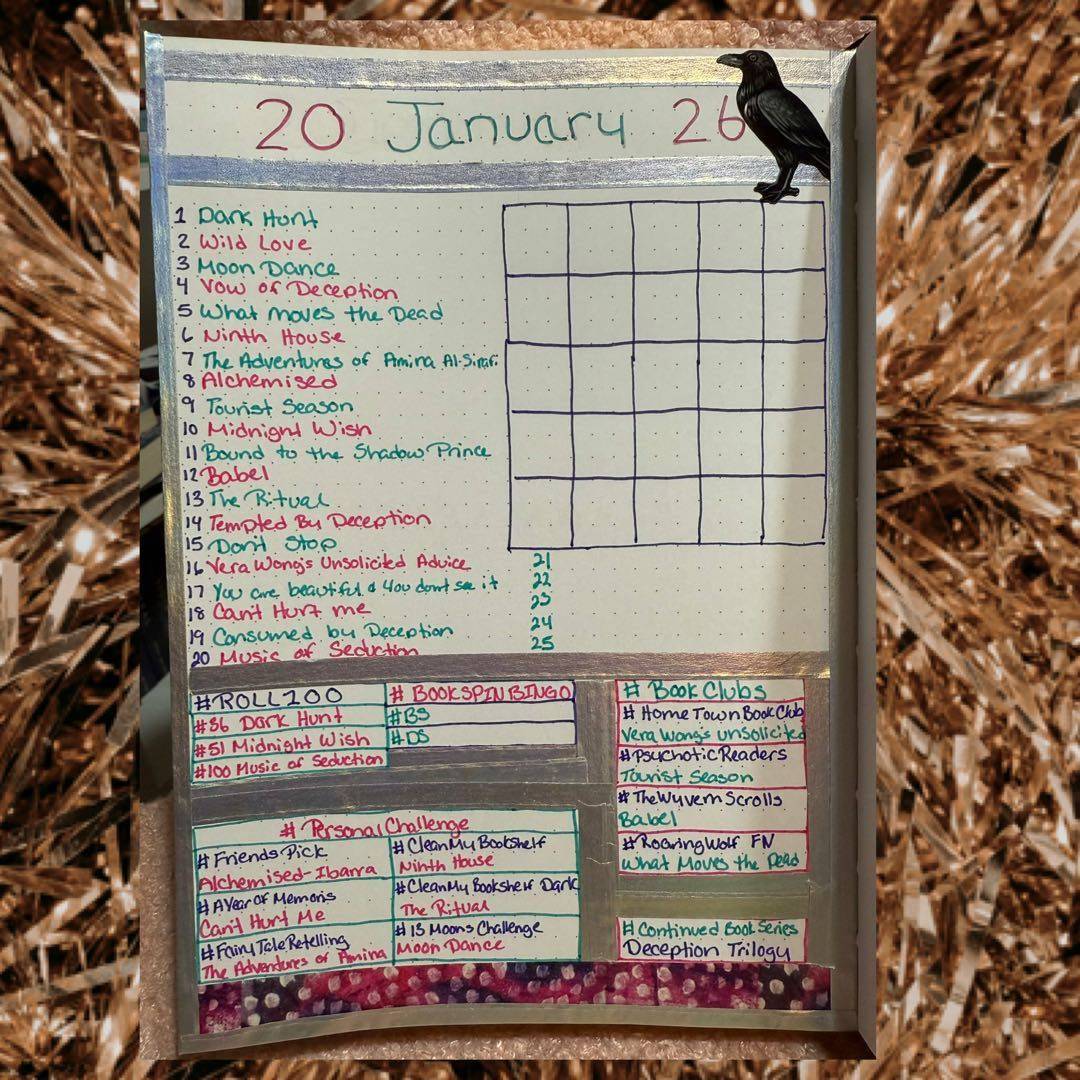 20 January 26
1 Dark Hunt
2 Wild Love
3 Moon Dance
4 Vow of Deception
5 What moves the Dead
6 Ninth House
7 The Adventures of Amina Al-Sirafi
8 Alchemised
9 Tourist Season
10 Midnight Wish
11 Bound to the Shadow Prince
12 Babel
13 The Ritual
14 Tempted By Deception
15 Don't Stop
16 Vera Wong's Unsolicited Advice
17 You are beautiful & you dont see it
18 Can't Hurt me
19 Consumed by Deception
20 Music of Seduction
21
22
23
24
25
#ROLL100
#36 Dark Hunt
#51 Midnight Wish
#100 Music of Seduction
# BOOKSPINBINGO
#BS
#DS
# Book Clubs
# HomeTownBookClub
Vera Wong's unsolicited
#PsychoticReaders
Tourist Season
#TheWyvernScrolls
Babel
#RoaringWolf FN
What Moves the Dead
# Personal Challenge
# Friends Pick
Alchemised-Ibarra
# AYear Of Memoris
Can't Hurt Me
#FairyTaleRetelling
The Adventures of Amina
#CleanMy Bookshelf
Ninth House
#CleanMy Bookshelf Dark
The Ritual
#13 Moons Challenge
Moon Dance
# Continued Book Series
Deception Trilogy